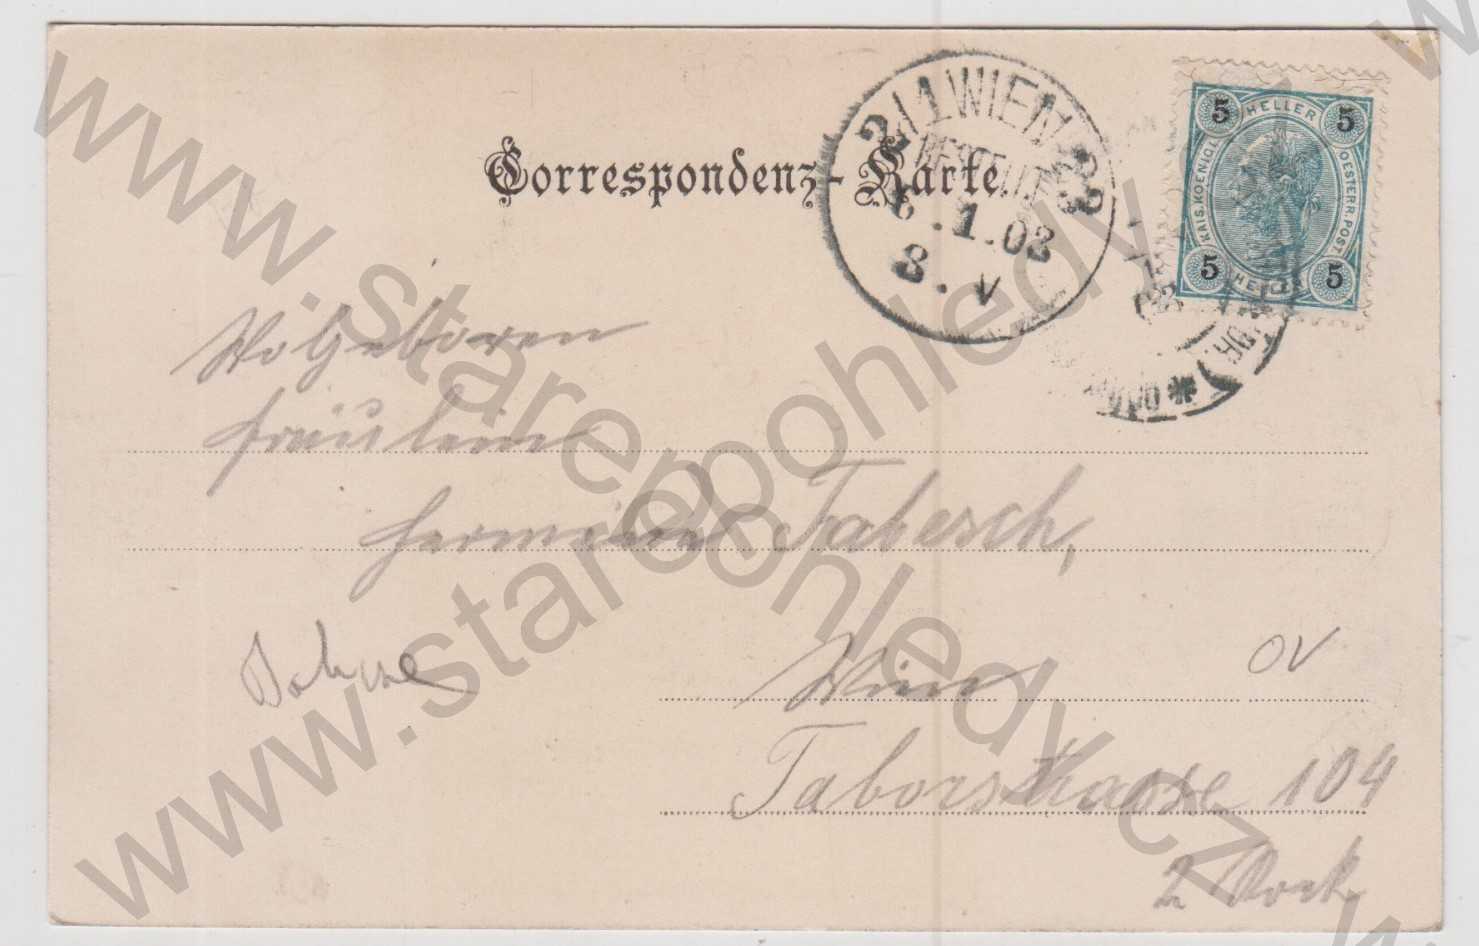 Correspondenz-Karte.
2/1 WIEN
BESTELLT
6.1.03
8.V
5 HELLER 5
KAIS. KOENIGL. OESTERR. POST
5 HELLER 5
Wolgeboren
Fräulein
Hermine Tabesch,
Wien
OV
Taborstrasse 104
2
www.starepohledy.cz
www.starepohledy.cz